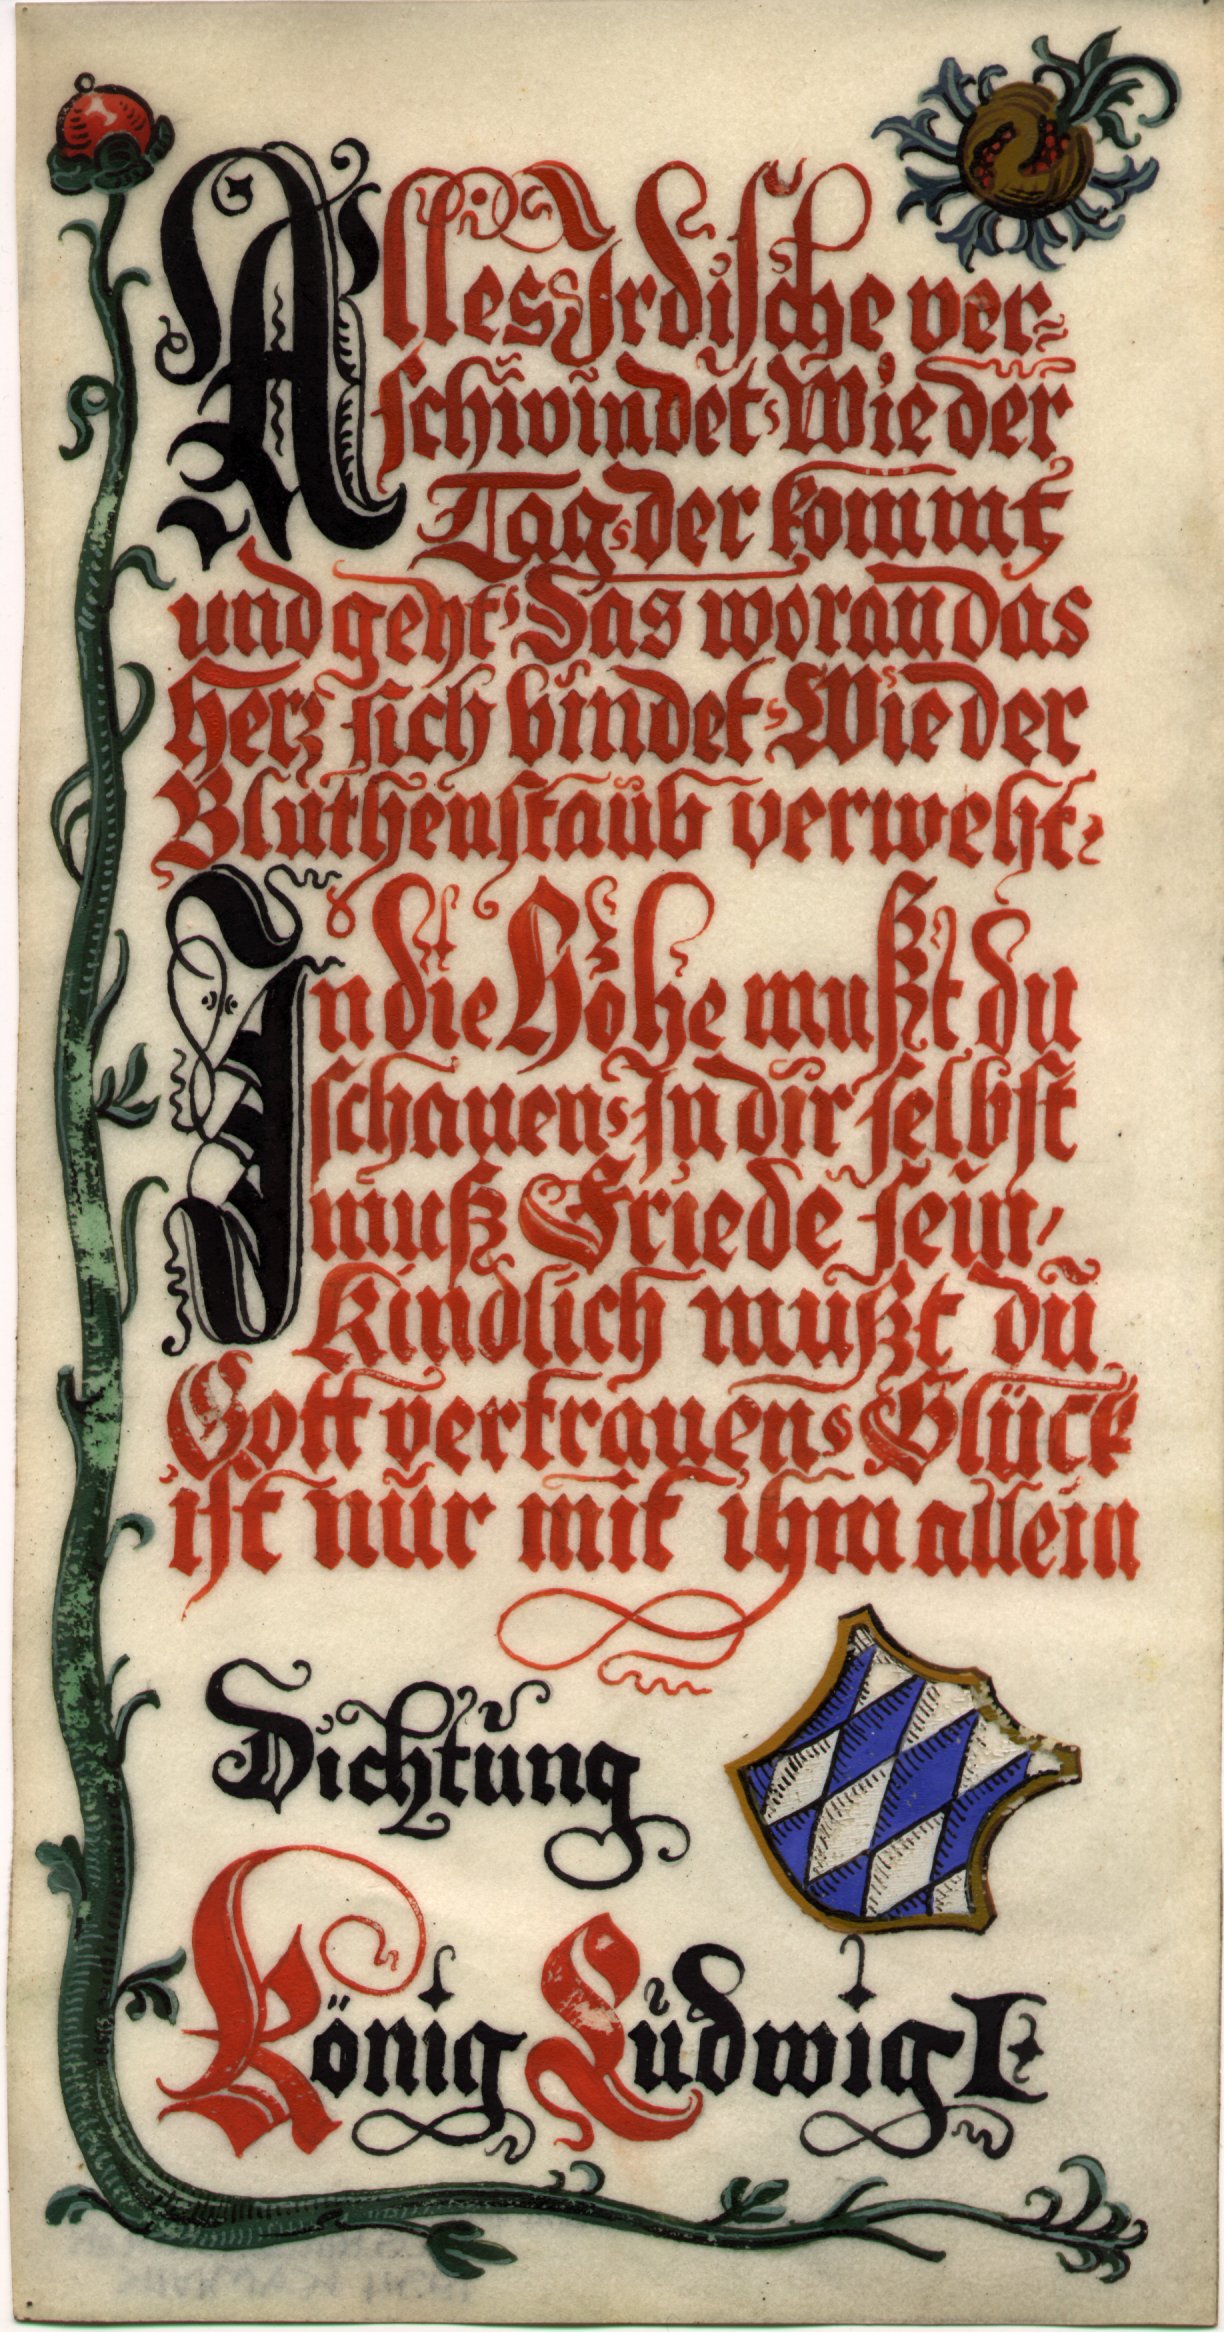 Alles Irdische ver-
schwindet, Wie der
Tag, der kommt
und geht, Das woran das
Herz sich bindet, Wie der
Blüthenstaub verweht.
In die Höhe mußt du
schauen, In dir selbst
muß Friede sein,
Kindlich mußt du
Gott vertrauen, Glück
ist nur mit ihm allein
Dichtung
König Ludwig I.